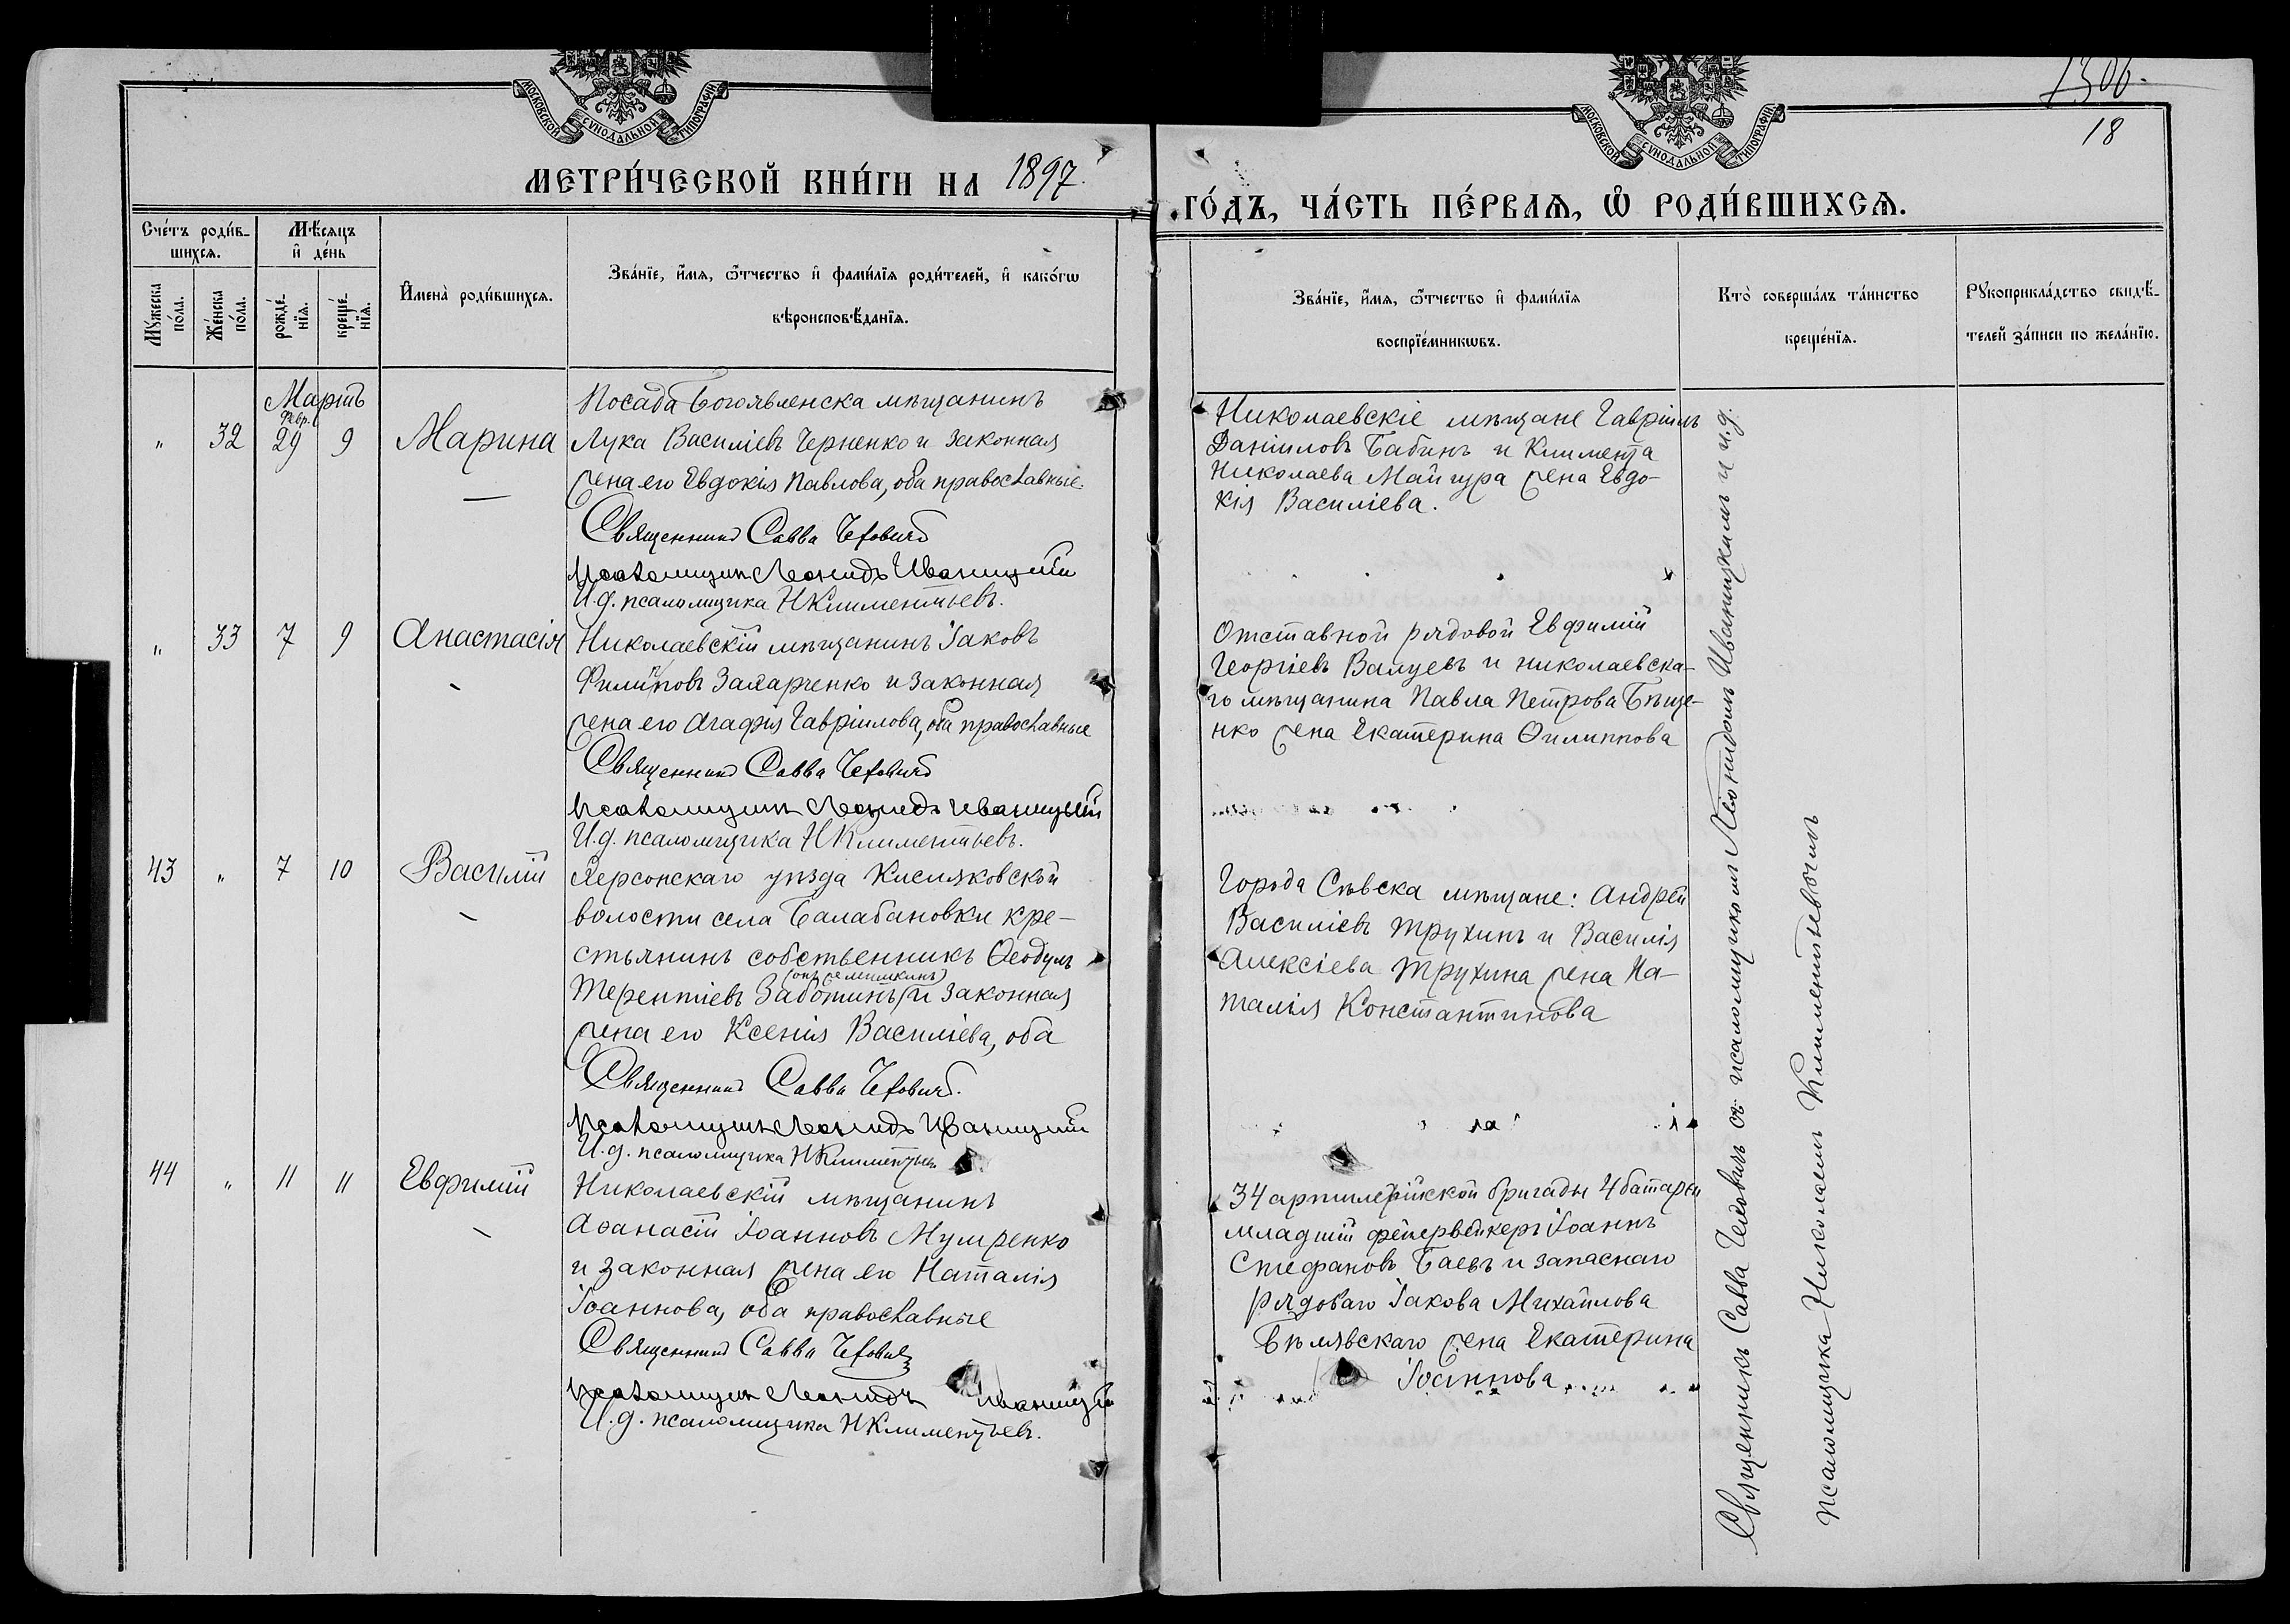 1306.
18
МОСКОВСКОЙ СѴНОДАЛЬНОЙ ТИПОГРАФІИ
МОСКОВСКОЙ СѴНОДАЛЬНОЙ ТИПОГРАФІИ
МЕТРИ́ЧЕСКОЙ КНИ́ГИ НА 1897.
ГО́ДЪ, ЧА́СТЬ ПЕ́РВАѦ, Ѡ҆ РОДИ́ВШИХСѦ.
Сче́тъ роди́в-
шихсѧ.
Мꙋ́жеска
по́ла.
Же́нска
по́ла.
Мѣ́сѧцъ
и҆ де́нь
рожде́-
нїѧ.
креще́-
нїѧ.
И҆мена̀ роди́вшихсѧ.
Зва́нїе, и҆́мѧ, ѻ҆́тчество и҆ фами́лїѧ роди́телей, и҆ како́гѡ
вѣроисповѣ́данїѧ.
Зва́нїе, и҆́мѧ, ѻ҆́тчество и҆ фами́лїѧ
воспрїе́мникѡвъ.
Кто̀ соверша́лъ та́инство
креще́нїѧ.
Рꙋкоприкла́дство свидѣ́-
телей за́писи по жела́нїю.
Мартъ
Февр.
„ 32 29 9 Марина
Посада Богоявленска мѣщанинъ
Лука Василіевъ Черненко и законная
жена его Евдокія Павлова, оба православные.
Священникъ Савва Чехович
Псаломщик Леонидъ Иваницкій
И.д. псаломщика Н Климентьевъ.
Николаевскіе мѣщане Гавріилъ
Даніиловъ Бабинъ и Климента
Николаева Майгура жена Евдо-
кія Василіева.
„ 33 7 9 Анастасія
Николаевскій мѣщанинъ Іаковъ
Филиповъ Захарченко и законная
жена его Агафія Гавріилова, оба православные
Священникъ Савва Чехович
Псаломщик Леонидъ Иваницкій
И.д. псаломщика Н Климентьевъ.
Отставной рядовой Евфимій
Георгіевъ Валуевъ и николаевска-
го мѣщанина Павла Петрова Бѣще-
нко жена Екатерина Филиппова
43 „ 7 10 Василій
Херсонскаго уѣзда Кисляковской
волости села Балабановки кре-
стьянинъ собственникъ Ѳеодулъ
Терентіевъ Заботинъ и законная
жена его Ксенія Василіева, оба
Священникъ Савва Чехович.
Псаломщик Леонидъ Иваницкій
И.д. псаломщика Н Климентьевъ
Города Сѣвска мѣщане: Андрей
Василіевъ Трухинъ и Василія
Алексіева Трухина жена На-
талія Константинова
44 „ 11 11 Евфимій
Николаевскій мѣщанинъ
Аѳанасій Іоанновъ
и законная жена его Наталія
Іоаннова, оба православные
Священникъ Савва Чехович
Псаломщик Леонидъ Иваницкій
И.д. псаломщика Н Климентьевъ.
34 артилерійской бригады 4 батареи
младшій фейерверкеръ Іоаннъ
Стефановъ Баевъ и запаснаго
рядоваго Іакова Михайлова
Бѣлявскаго жена Екатерина
Іоаннова
Священникъ Савва Чеховичъ съ псаломщикомъ Леонидомъ Иваницкимъ и и.д.
псаломщика Николаемъ Климентіевичемъ